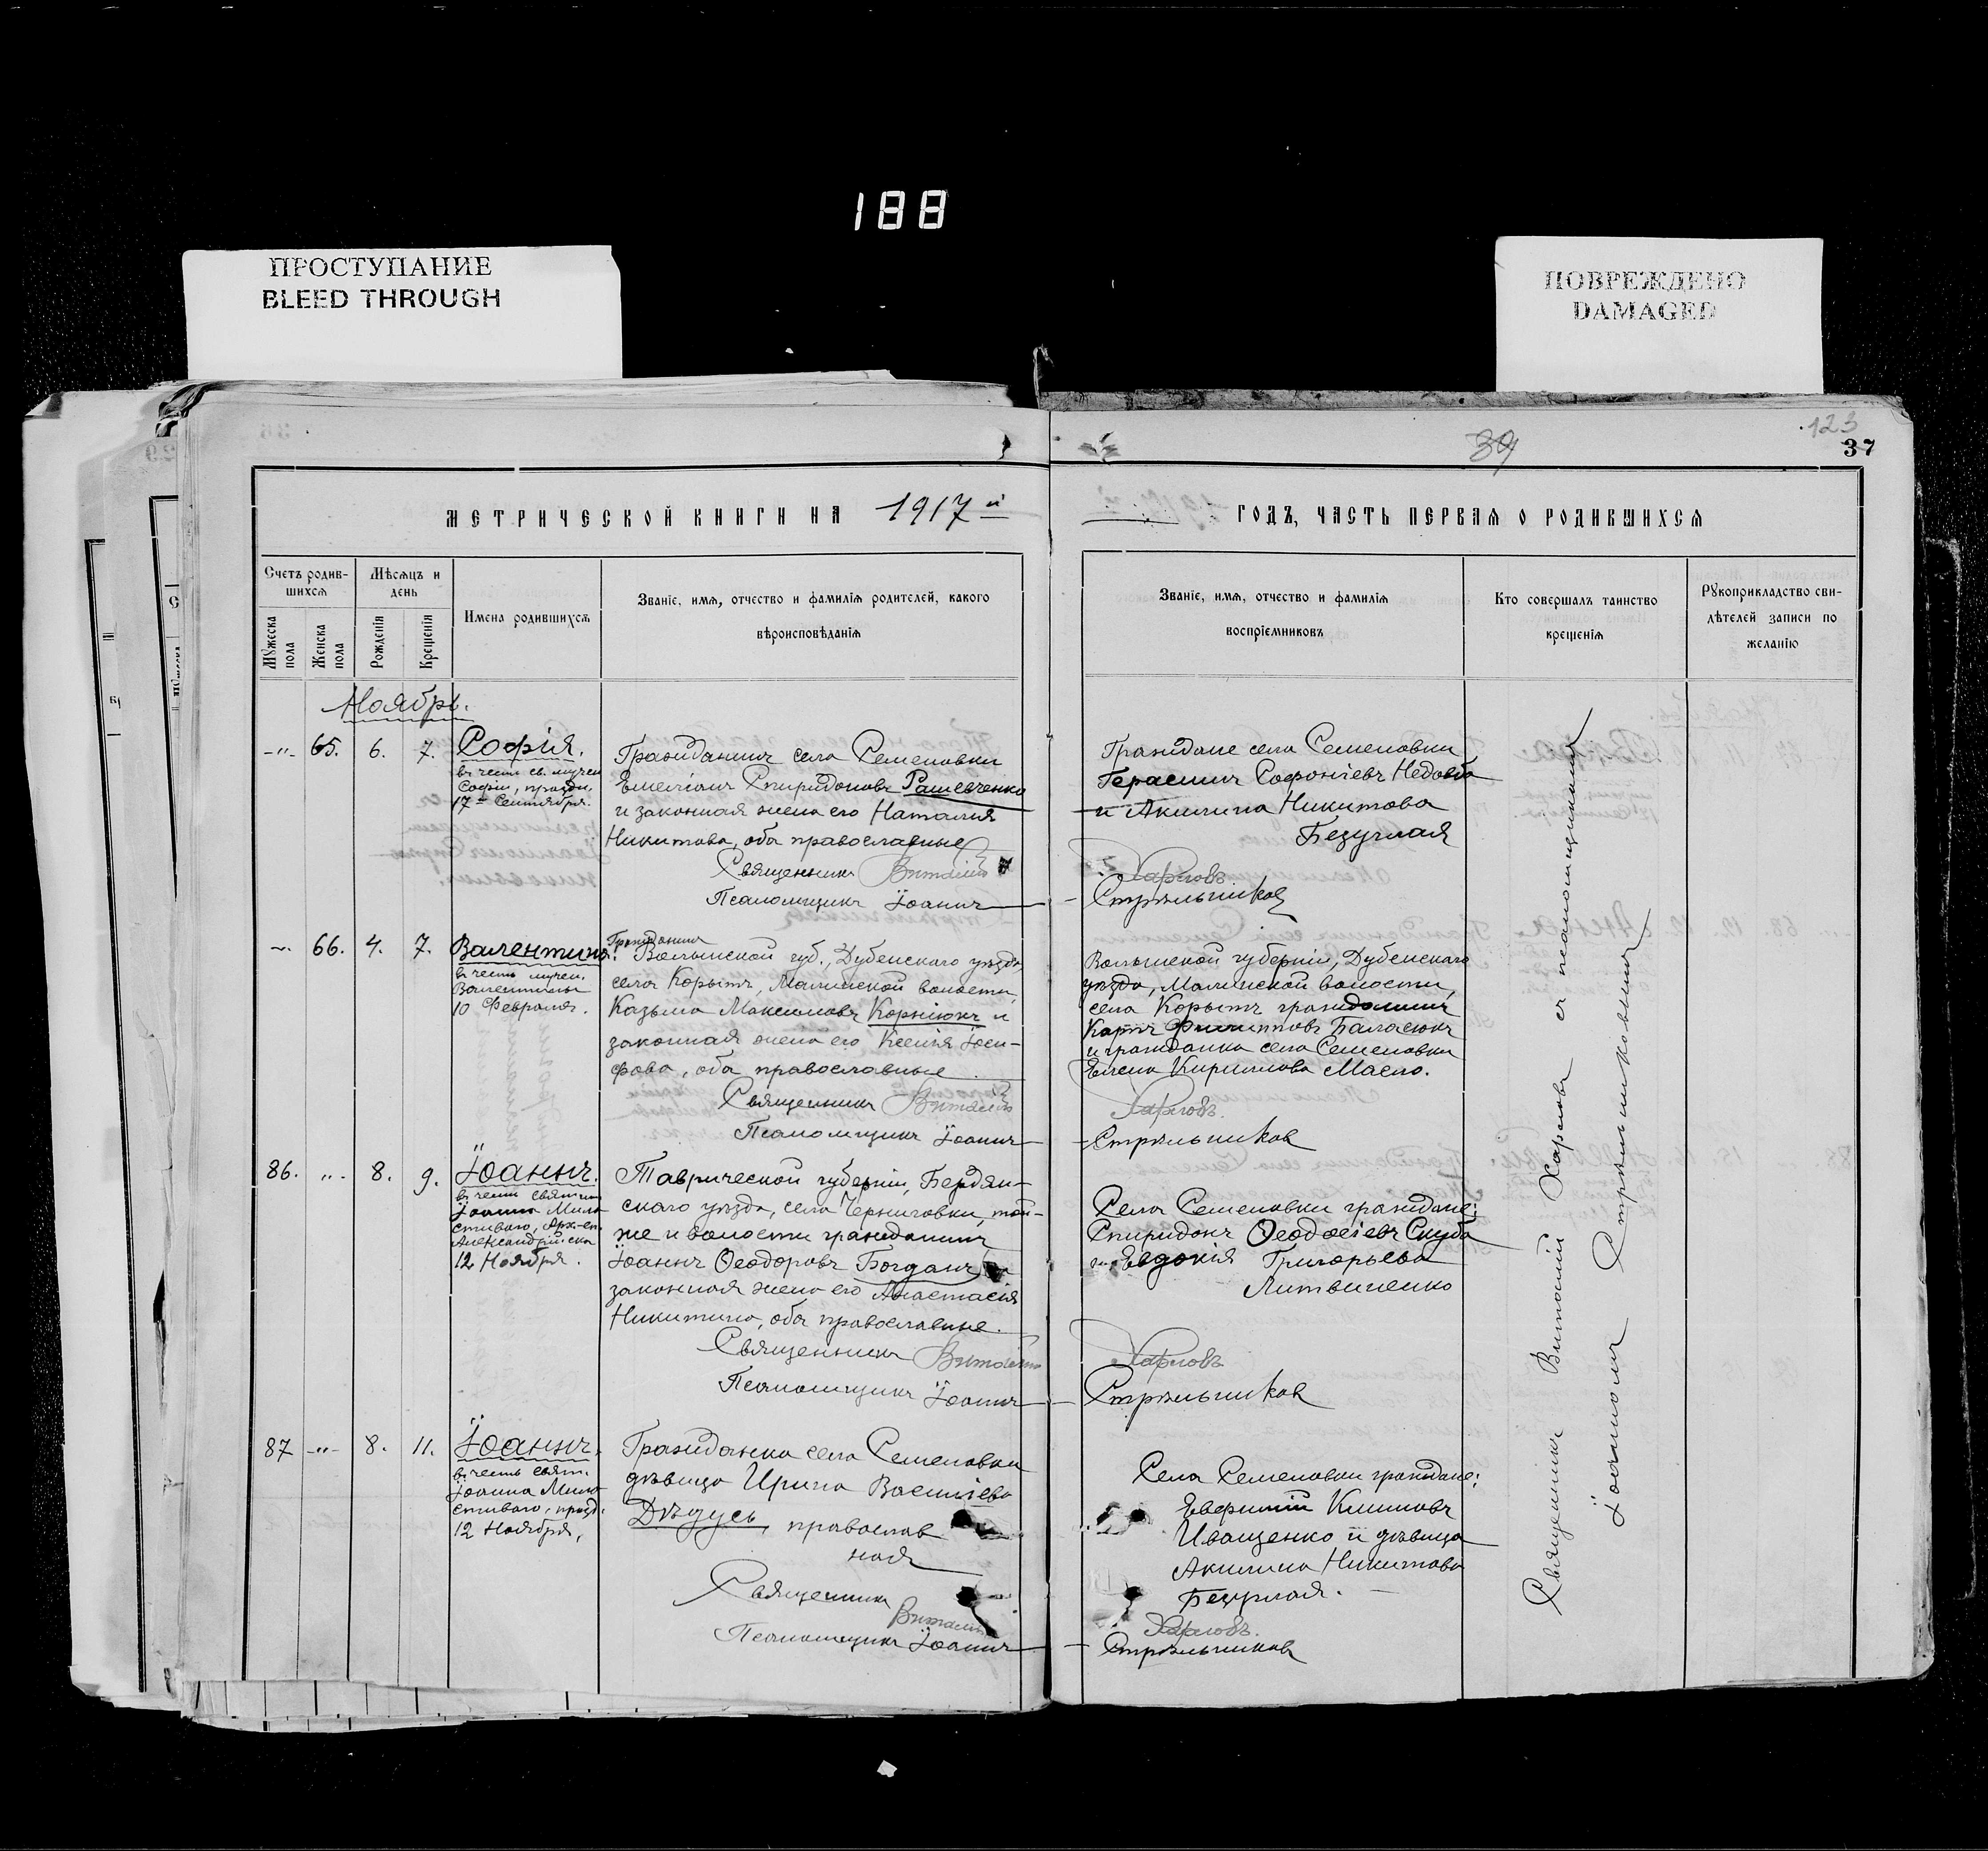 188
ПРОСТУПАНИЕ
BLEED THROUGH
ПОВРЕЖДЕНО
DAMAGED
123
39
37
МЕТРИЧЕСКОЙ КНИГИ НА 1917й
ГОДЪ, ЧАСТЬ ПЕРВАЯ О РОДИВШИХСЯ
Счетъ родив-
шихся
Мѣсяцъ и
день
Мужеска пола
Женска пола
Рожденія
Крещенія
Имена родившихся
Званіе, имя, отчество и фамилія родителей, какого
вѣроисповѣданія
Званіе, имя, отчество и фамилія
воспріемниковъ
Кто совершалъ таинство
крещенія
Рукоприкладство сви-
дѣтелей записи по
желанію
Ноябрь.
-"- 65. 6. 7. Софія.
въ честь св. мучен.
Софіи, праздн.
17го Сентября.
Гражданинъ села Семеновки
Емеліанъ Спиридоновъ Рашевченко
и законная жена его Наталія
Никитова, оба православные
Священникъ Виталій
Псаломщикъ Іоаннъ
Граждане села Семеновки
Герасимъ Софоніевъ Недовба
и Акилина Никитова
Безуглая
Харловъ
Стрѣльниковъ
66. 4. 7. Валентина.
въ честь мучен.
Валентины
10 Февраля.
Гражданинъ
Волынской губ., Дубенскаго уѣзда,
села Корытъ, Малинской волости,
Казьма Максимовъ Корніюкъ и
законная жена его Ксенія Іоси-
фова, оба православные
Священникъ Виталій
Псаломщикъ Іоаннъ
Волынской губерніи, Дубенскаго
уѣзда, Малинской волости,
села Корытъ гражданинъ
Карпъ Филипповъ Баласюкъ
и гражданка села Семеновки
Елена Кириллова Масло.
Харловъ.
Стрѣльниковъ
86. "- 8. 9. Іоаннъ.
въ честь святит.
Іоанна Мило-
стиваго, Арх-еп.
Александрійска
12 Ноября.
Таврической губерніи, Бердян-
скаго уѣзда, села Черниговки, той-
же и волости гражданинъ
Іоаннъ Ѳеодоровъ Богданъ и
законная жена его Анастасія
Никитина, оба православные.
Священникъ Виталій
Псаломщикъ Іоаннъ
Села Семеновки граждане:
Спиридонъ Ѳеодосіевъ Скуба
и Евдокія Григорьева
Литвиненко
Харловъ
Стрѣльниковъ
87 -"- 8. 11. Іоаннъ.
въ честь свят.
Іоанна Мило-
стиваго, празд.
12 Ноября,
Гражданка села Семеновки
дѣвица Ирина Васильева
Дѣдусь, православ
ная
Священникъ Виталій
Псаломщикъ Іоаннъ
Села Семеновки граждане:
Климовъ
Иващенко и дѣвица
Акилина Никитова
Безуглая.
Харловъ.
Стрѣльниковъ
Священникъ Виталій Харловъ съ псаломщикомъ
Іоанномъ Стрѣльниковымъ